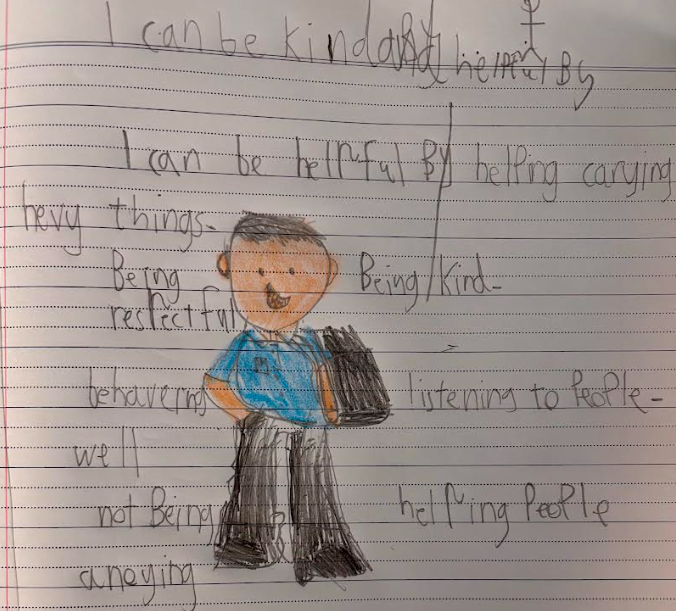 I can be kind and helpful By
I can be helpful By helping carying
hevy things.
Being
respectful
Being kind-
behavering
well
listening to People-
not Being
anoying
helping People